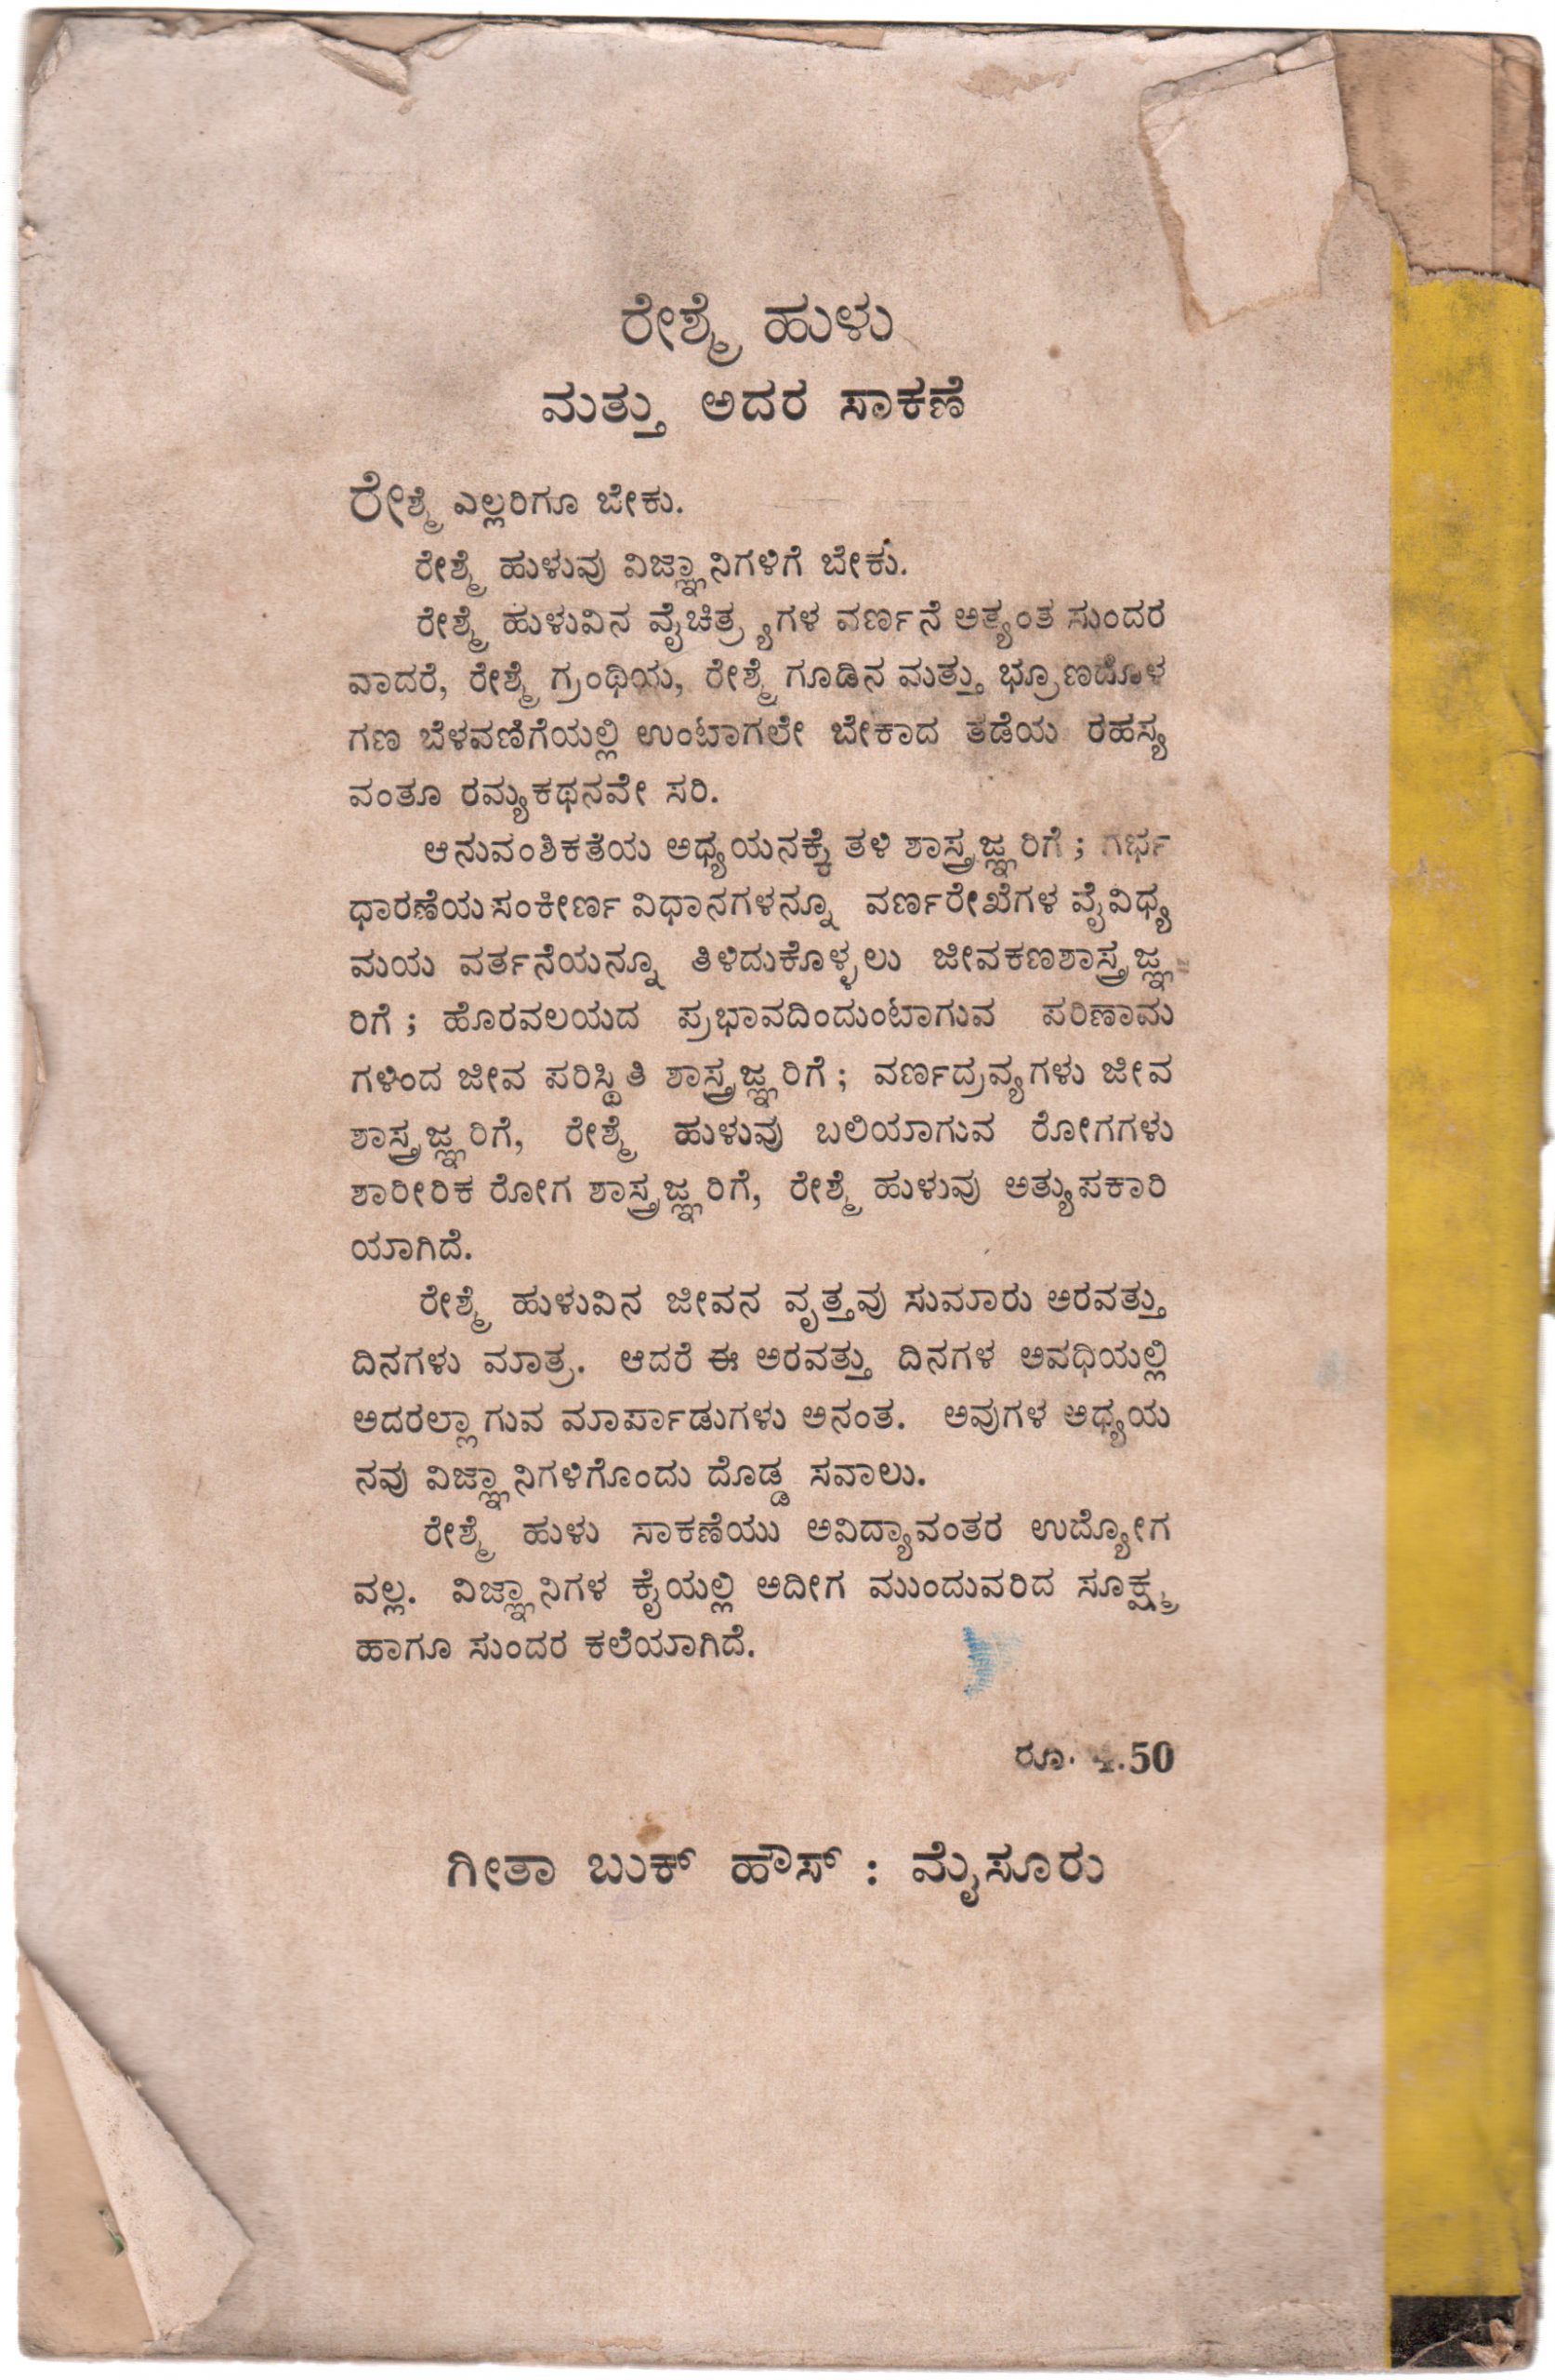 ರೇಶ್ಮೆ ಹುಳು
ಮತ್ತು ಅದರ ಸಾಕಣೆ
ರೇಶ್ಮೆ ಎಲ್ಲರಿಗೂ ಬೇಕು.
ರೇಶ್ಮೆ ಹುಳುವು ವಿಜ್ಞಾನಿಗಳಿಗೆ ಬೇಕು.
ರೇಶ್ಮೆ ಹುಳುವಿನ ವೈಚಿತ್ರ್ಯಗಳ ವರ್ಣನೆ ಅತ್ಯಂತ ಸುಂದರ
ವಾದರೆ, ರೇಶ್ಮೆ ಗ್ರಂಥಿಯ, ರೇಶ್ಮೆ ಗೂಡಿನ ಮತ್ತು ಭ್ರೂಣದೊಳ
ಗಣ ಬೆಳವಣಿಗೆಯಲ್ಲಿ ಉಂಟಾಗಲೇ ಬೇಕಾದ ತಡೆಯ ರಹಸ್ಯ
ವಂತೂ ರಮ್ಯಕಥನವೇ ಸರಿ.
ಆನುವಂಶಿಕತೆಯ ಅಧ್ಯಯನಕ್ಕೆ ತಳಿ ಶಾಸ್ತ್ರಜ್ಞರಿಗೆ ; ಗರ್ಭ
ಧಾರಣೆಯ ಸಂಕೀರ್ಣ ವಿಧಾನಗಳನ್ನೂ ವರ್ಣರೇಖೆಗಳ ವೈವಿಧ್ಯ
ಮಯ ವರ್ತನೆಯನ್ನೂ ತಿಳಿದುಕೊಳ್ಳಲು ಜೀವಕಣಶಾಸ್ತ್ರಜ್ಞ-
ರಿಗೆ ; ಹೊರವಲಯದ ಪ್ರಭಾವದಿಂದುಂಟಾಗುವ ಪರಿಣಾಮ
ಗಳಿಂದ ಜೀವ ಪರಿಸ್ಥಿತಿ ಶಾಸ್ತ್ರಜ್ಞರಿಗೆ ; ವರ್ಣದ್ರವ್ಯಗಳು ಜೀವ
ಶಾಸ್ತ್ರಜ್ಞರಿಗೆ, ರೇಶ್ಮೆ ಹುಳುವು ಬಲಿಯಾಗುವ ರೋಗಗಳು
ಶಾರೀರಿಕ ರೋಗ ಶಾಸ್ತ್ರಜ್ಞರಿಗೆ, ರೇಶ್ಮೆ ಹುಳುವು ಅತ್ಯುಪಕಾರಿ
ಯಾಗಿದೆ.
ರೇಶ್ಮೆ ಹುಳುವಿನ ಜೀವನ ವೃತ್ತವು ಸುಮಾರು ಅರವತ್ತು
ದಿನಗಳು ಮಾತ್ರ. ಆದರೆ ಈ ಅರವತ್ತು ದಿನಗಳ ಅವಧಿಯಲ್ಲಿ
ಅದರಲ್ಲಾಗುವ ಮಾರ್ಪಾಡುಗಳು ಅನಂತ. ಅವುಗಳ ಅಧ್ಯಯ
ನವು ವಿಜ್ಞಾನಿಗಳಿಗೊಂದು ದೊಡ್ಡ ಸವಾಲು.
ರೇಶ್ಮೆ ಹುಳು ಸಾಕಣೆಯು ಅವಿದ್ಯಾವಂತರ ಉದ್ಯೋಗ
ವಲ್ಲ. ವಿಜ್ಞಾನಿಗಳ ಕೈಯಲ್ಲಿ ಅದೀಗ ಮುಂದುವರಿದ ಸೂಕ್ಷ್ಮ
ಹಾಗೂ ಸುಂದರ ಕಲೆಯಾಗಿದೆ.
ರೂ. 4.50
ಗೀತಾ ಬುಕ್ ಹೌಸ್ : ಮೈಸೂರು